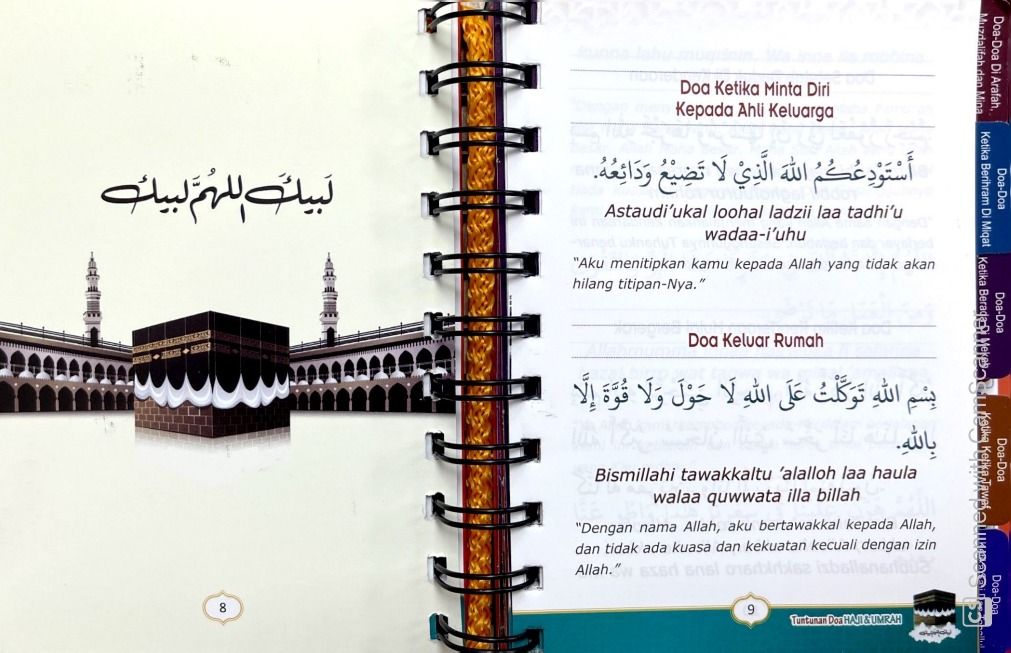 لبيكَ اللهُمَّ لبيك
8
Doa Ketika Minta Diri
Kepada Ahli Keluarga
أَسْتَوْدِعُكُمُ اللهَ الَّذِيْ لَا تَضِيْعُ وَدَائِعُهُ.
Astaudi’ukal loohal ladzii laa tadhi’u
wadaa-i’uhu
“Aku menitipkan kamu kepada Allah yang tidak akan
hilang titipan-Nya.”
Doa Keluar Rumah
بِسْمِ اللهِ تَوَكَّلْتُ عَلَى اللهِ لَا حَوْلَ وَلَا قُوَّةَ إِلَّا
بِاللهِ.
Bismillahi tawakkaltu ’alalloh laa haula
walaa quwwata illa billah
“Dengan nama Allah, aku bertawakkal kepada Allah,
dan tidak ada kuasa dan kekuatan kecuali dengan izin
Allah.”
9
Tuntunan Doa HAJI & UMRAH
Doa-Doa Di Arafah,
Muzdalifah dan Mina
Doa-Doa
Ketika Berihram Di Miqat
Doa-Doa
Ketika Berada Di Mekah
Doa-Doa
Ketika Tawaf
Doa-Doa
CS Scanned with CamScanner